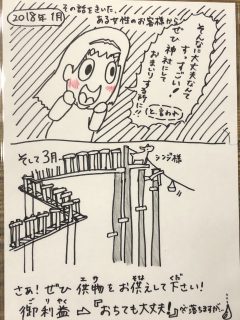 2018年1月
その話をきいた、
ある女性のお客様から
そんなに大丈夫なんて
す、すごい!
ぜひ神社にして
おまいりする所に!!
(と、言われ
そして3月…
シンジ様
さあ!ぜひ供物をお供えして下さい!
エサ
そな
くだ
御利益⇨『おちても大丈夫!』
ごりやく
が落ちますが…